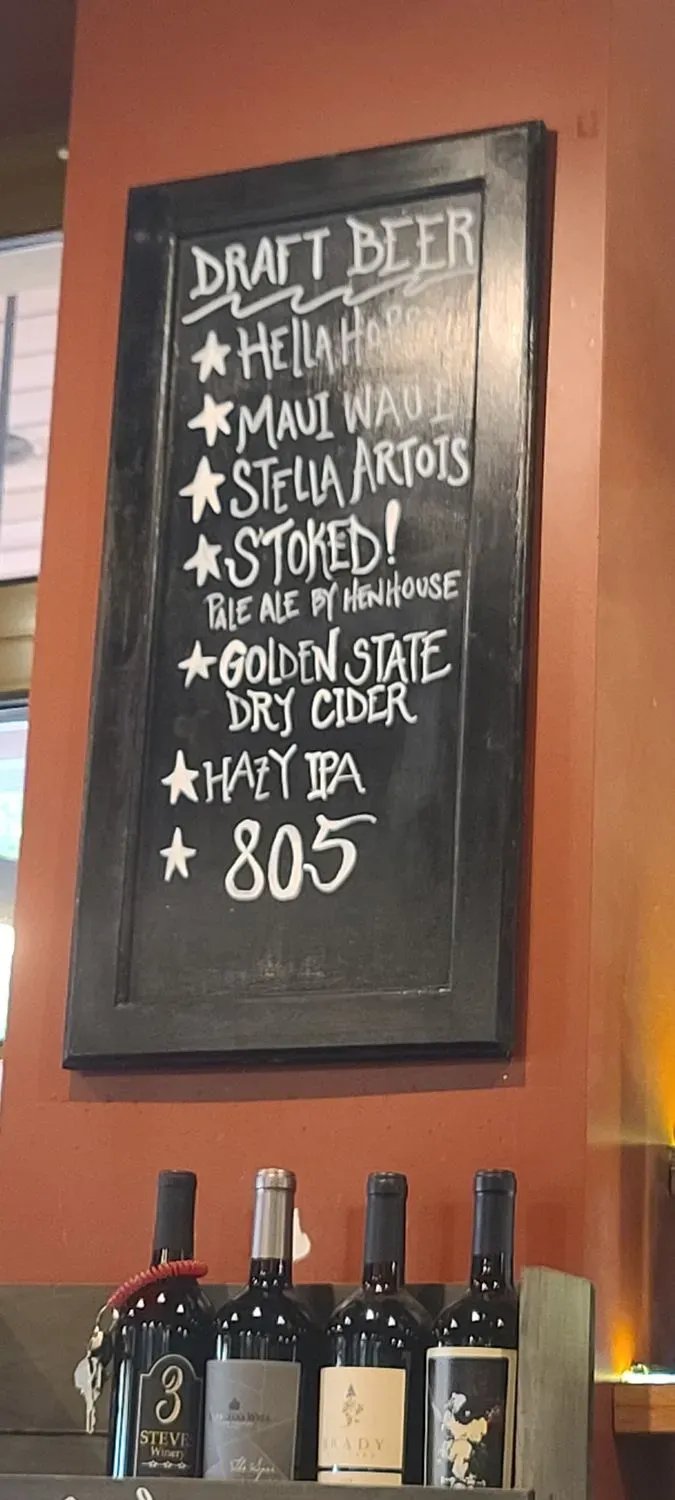 DRAFT BEER
HELLA HOPPY
MAUI WAUI
STELLA ARTOIS
STOKED!
PALE ALE BY HENHOUSE
GOLDEN STATE
DRY CIDER
HAZY IPA
805
3
STEVES
Winery
The Spur
BRADY